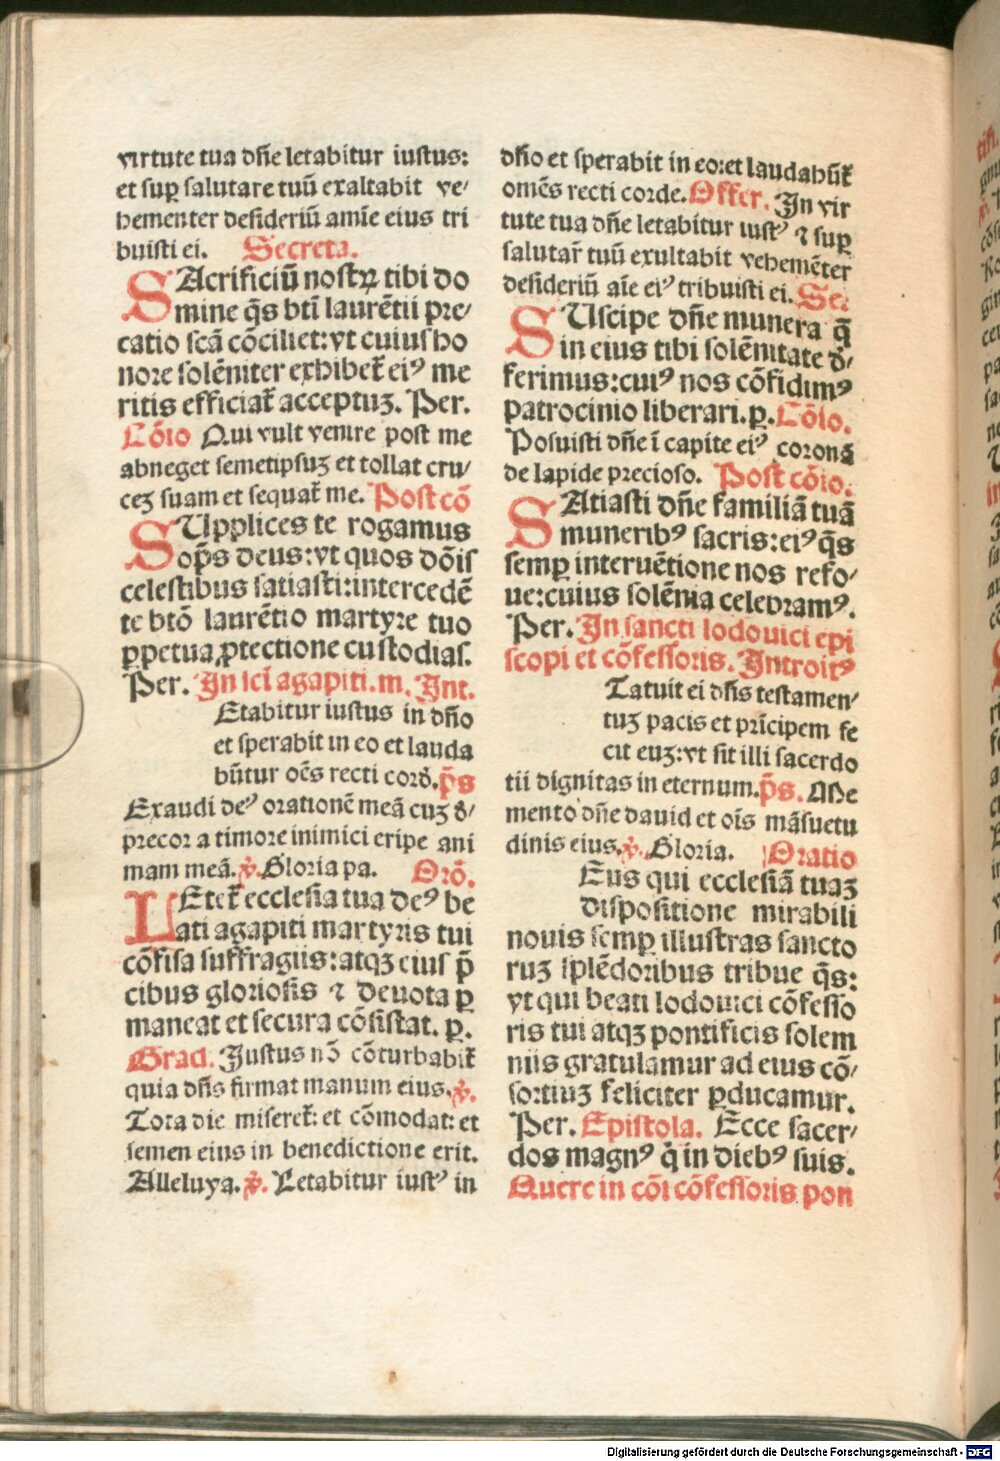 virtute tua dñe letabitur iustus:
et sup̱ salutare tuū exaltabit ve⸗
hementer desideriū amie eius tri
buisti ei. Secreta.
SAcrificiū nostrꝝ tibi do
mine q̄s bt̄i laurētii pre⸗
catio scā cōciliet: vt cuius ho
nore solēniter exhibet̄ ei⁹ me
ritis efficiat̄ acceptuʒ. Per.
Cōio Qui vult venire post me
abneget semetipsuʒ et tollat cru⸗
ceʒ suam et sequat̄ me. Post cō
SUpplices te rogamus
op̄s deus: vt quos dōis
celestibus satiasti: intercedē
te btō laurētio martyre tuo
ꝑpetua ꝓtectione custodias.
Per. In sc̄i agapiti. m. Int.
Etabitur iustus in dño
et sperabit in eo et lauda
būtur oēs recti cord̄. p̄s
Exaudi de⁹ orationē meā cuʒ d̄⸗
precor a timore inimici eripe ani
mam meā. ℣. Gloria pa. Orō.
LEtet̄ ecclesia tua de⁹ be
ati agapiti martyris tui
cōfisa suffragiis: atqʒ eius p̄
cibus gloriosis ⁊ deuota ꝑ
maneat et secura cōsistat. ꝑ.
Grad. Justus nō cōturbabit̄
quia dñs firmat manum eius. ℣.
Tota die miseret̄: et cōmodat: et
semen eius in benedictione erit.
Alleluya. ℣. Letabitur iust⁹ in
dño et sperabit in eo: et laudabūt̄
omēs recti corde. Offer. In vir
tute tua dñe letabitur iust⁹ ⁊ sup̱
salutar̄ tuū exultabit vehemēter
desideriū aīe ei⁹ tribuisti ei. Se⁊
SUscipe dñe munera q̄
in eius tibi solēnitate d̄⸗
ferimus: cui⁹ nos cōfidim⁹
patrocinio liberari. ꝑ. Cōio.
Posuisti dñe ī capite ei⁹ coronā
de lapide precioso. Post cōio.
SAtiasti dñe familiā tuā
munerib⁹ sacris: ei⁹ q̄s
semꝑ interuētione nos refo⸗
ue: cuius solēnia celebram⁹.
Per. In sancti lodouici epi
scopi et cōfessoris. Introit⁹
Tatuit ei dñs testamen⸗
tuʒ pacis et prīcipem fe
cit euʒ: vt sit illi sacerdo
tii dignitas in eternum. p̄s. Me
mento dñe dauid et oīs māsuetu
dinis eius. ℣. Gloria. Oratio
Eus qui ecclesiā tuaʒ
dispositione mirabili
nouis semꝑ illustras sancto
ruʒ splēdoribus tribue q̄s:
vt qui beati lodouici cōfesso
ris tui atqʒ pontificis solem
niis gratulamur ad eius cō⸗
sortiuʒ feliciter ꝑducamur.
Per. Epistola. Ecce sacer⸗
dos magn⁹ q̇ in dieb⁹ suis.
Quere in cōi cōfessoris pon
Digitalisierung gefördert durch die Deutsche Forschungsgemeinschaft - DFG